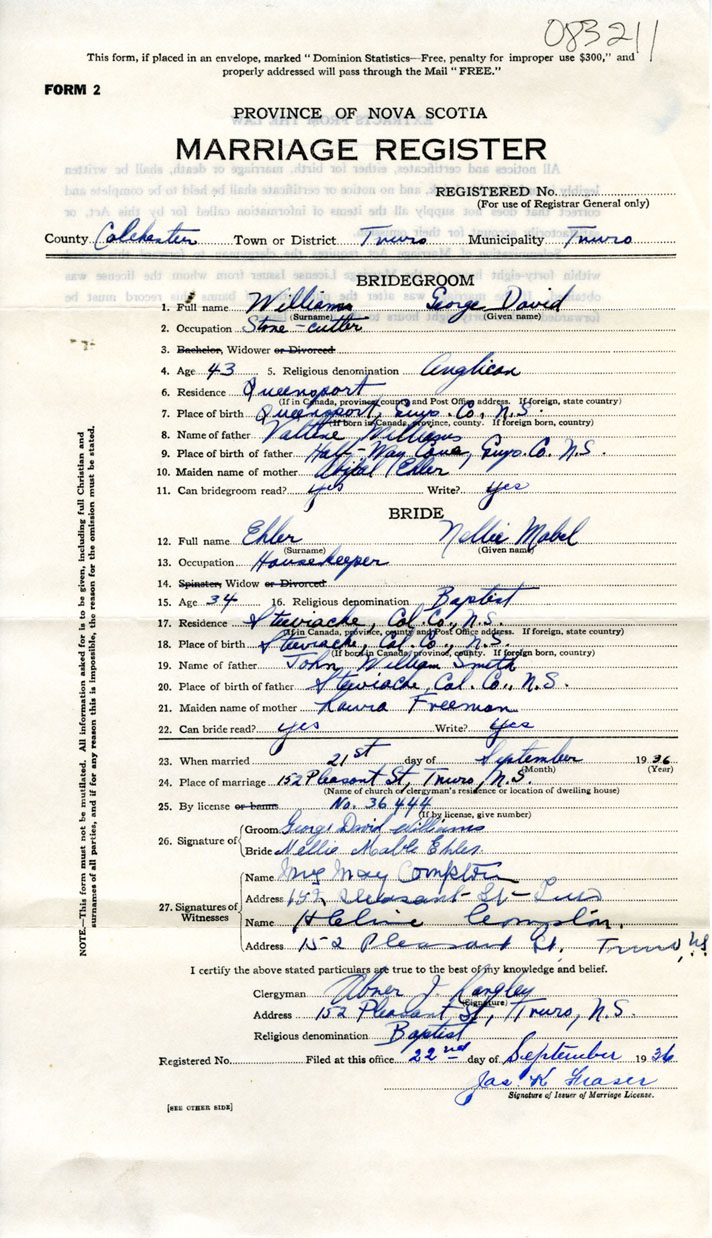 083211
This form, if placed in an envelope, marked "Dominion Statistics—Free, penalty for improper use $300," and
properly addressed will pass through the Mail "FREE."
FORM 2
PROVINCE OF NOVA SCOTIA
MARRIAGE REGISTER
REGISTERED No.
(For use of Registrar General only)
County Colchester Town or District Truro Municipality Truro
BRIDEGROOM
1. Full name Williams George David
(Surname) (Given name)
2. Occupation Stone-cutter
3. Bachelor, Widower or Divorced
4. Age 43 5. Religious denomination Anglican
6. Residence Queensport
(If in Canada, province, county and Post Office address. If foreign, state country)
7. Place of birth Queensport, Guys. Co., N.S.
(If born in Canada, province, county. If foreign born, country)
8. Name of father Williams
9. Place of birth of father Half-Way Cove, Guys. Co. N.S.
10. Maiden name of mother Ehler
11. Can bridegroom read? yes Write? yes
BRIDE
12. Full name Ehler Nellie Mabel
(Surname) (Given name)
13. Occupation Housekeeper
14. Spinster, Widow or Divorced
15. Age 34 16. Religious denomination Baptist
17. Residence Stewiacke, Col. Co., N.S.
(If in Canada, province, county and Post Office address. If foreign, state country)
18. Place of birth Stewiacke, Col. Co., N.S.
(If born in Canada, province, county. If foreign born, country)
19. Name of father John William Smith
20. Place of birth of father Stewiacke, Col. Co., N.S.
21. Maiden name of mother Laura Freeman
22. Can bride read? yes Write? yes
23. When married 21st day of September 1936
(Month) (Year)
24. Place of marriage 152 Pleasant St., Truro, N.S.
(Name of church or clergyman's residence or location of dwelling house)
25. By license or banns No. 36444
(If by license, give number)
26. Signature of
Groom George David Williams
Bride Nellie Mable Ehler
27. Signatures of Witnesses
Name Mrs May Compton
Address 152 Pleasant St
Name Compton
Address 152 Pleasant St. Truro, N.S.
I certify the above stated particulars are true to the best of my knowledge and belief.
Clergyman Abner J. Langley
(Signature)
Address 152 Pleasant St., Truro, N.S.
Religious denomination Baptist
Registered No. Filed at this office 22nd day of September 1936
Jas K Fraser
Signature of Issuer of Marriage License.
[SEE OTHER SIDE]
NOTE.—This form must not be mutilated. All information asked for is to be given, including full Christian and
surnames of all parties, and if for any reason this is impossible, the reason for the omission must be stated.